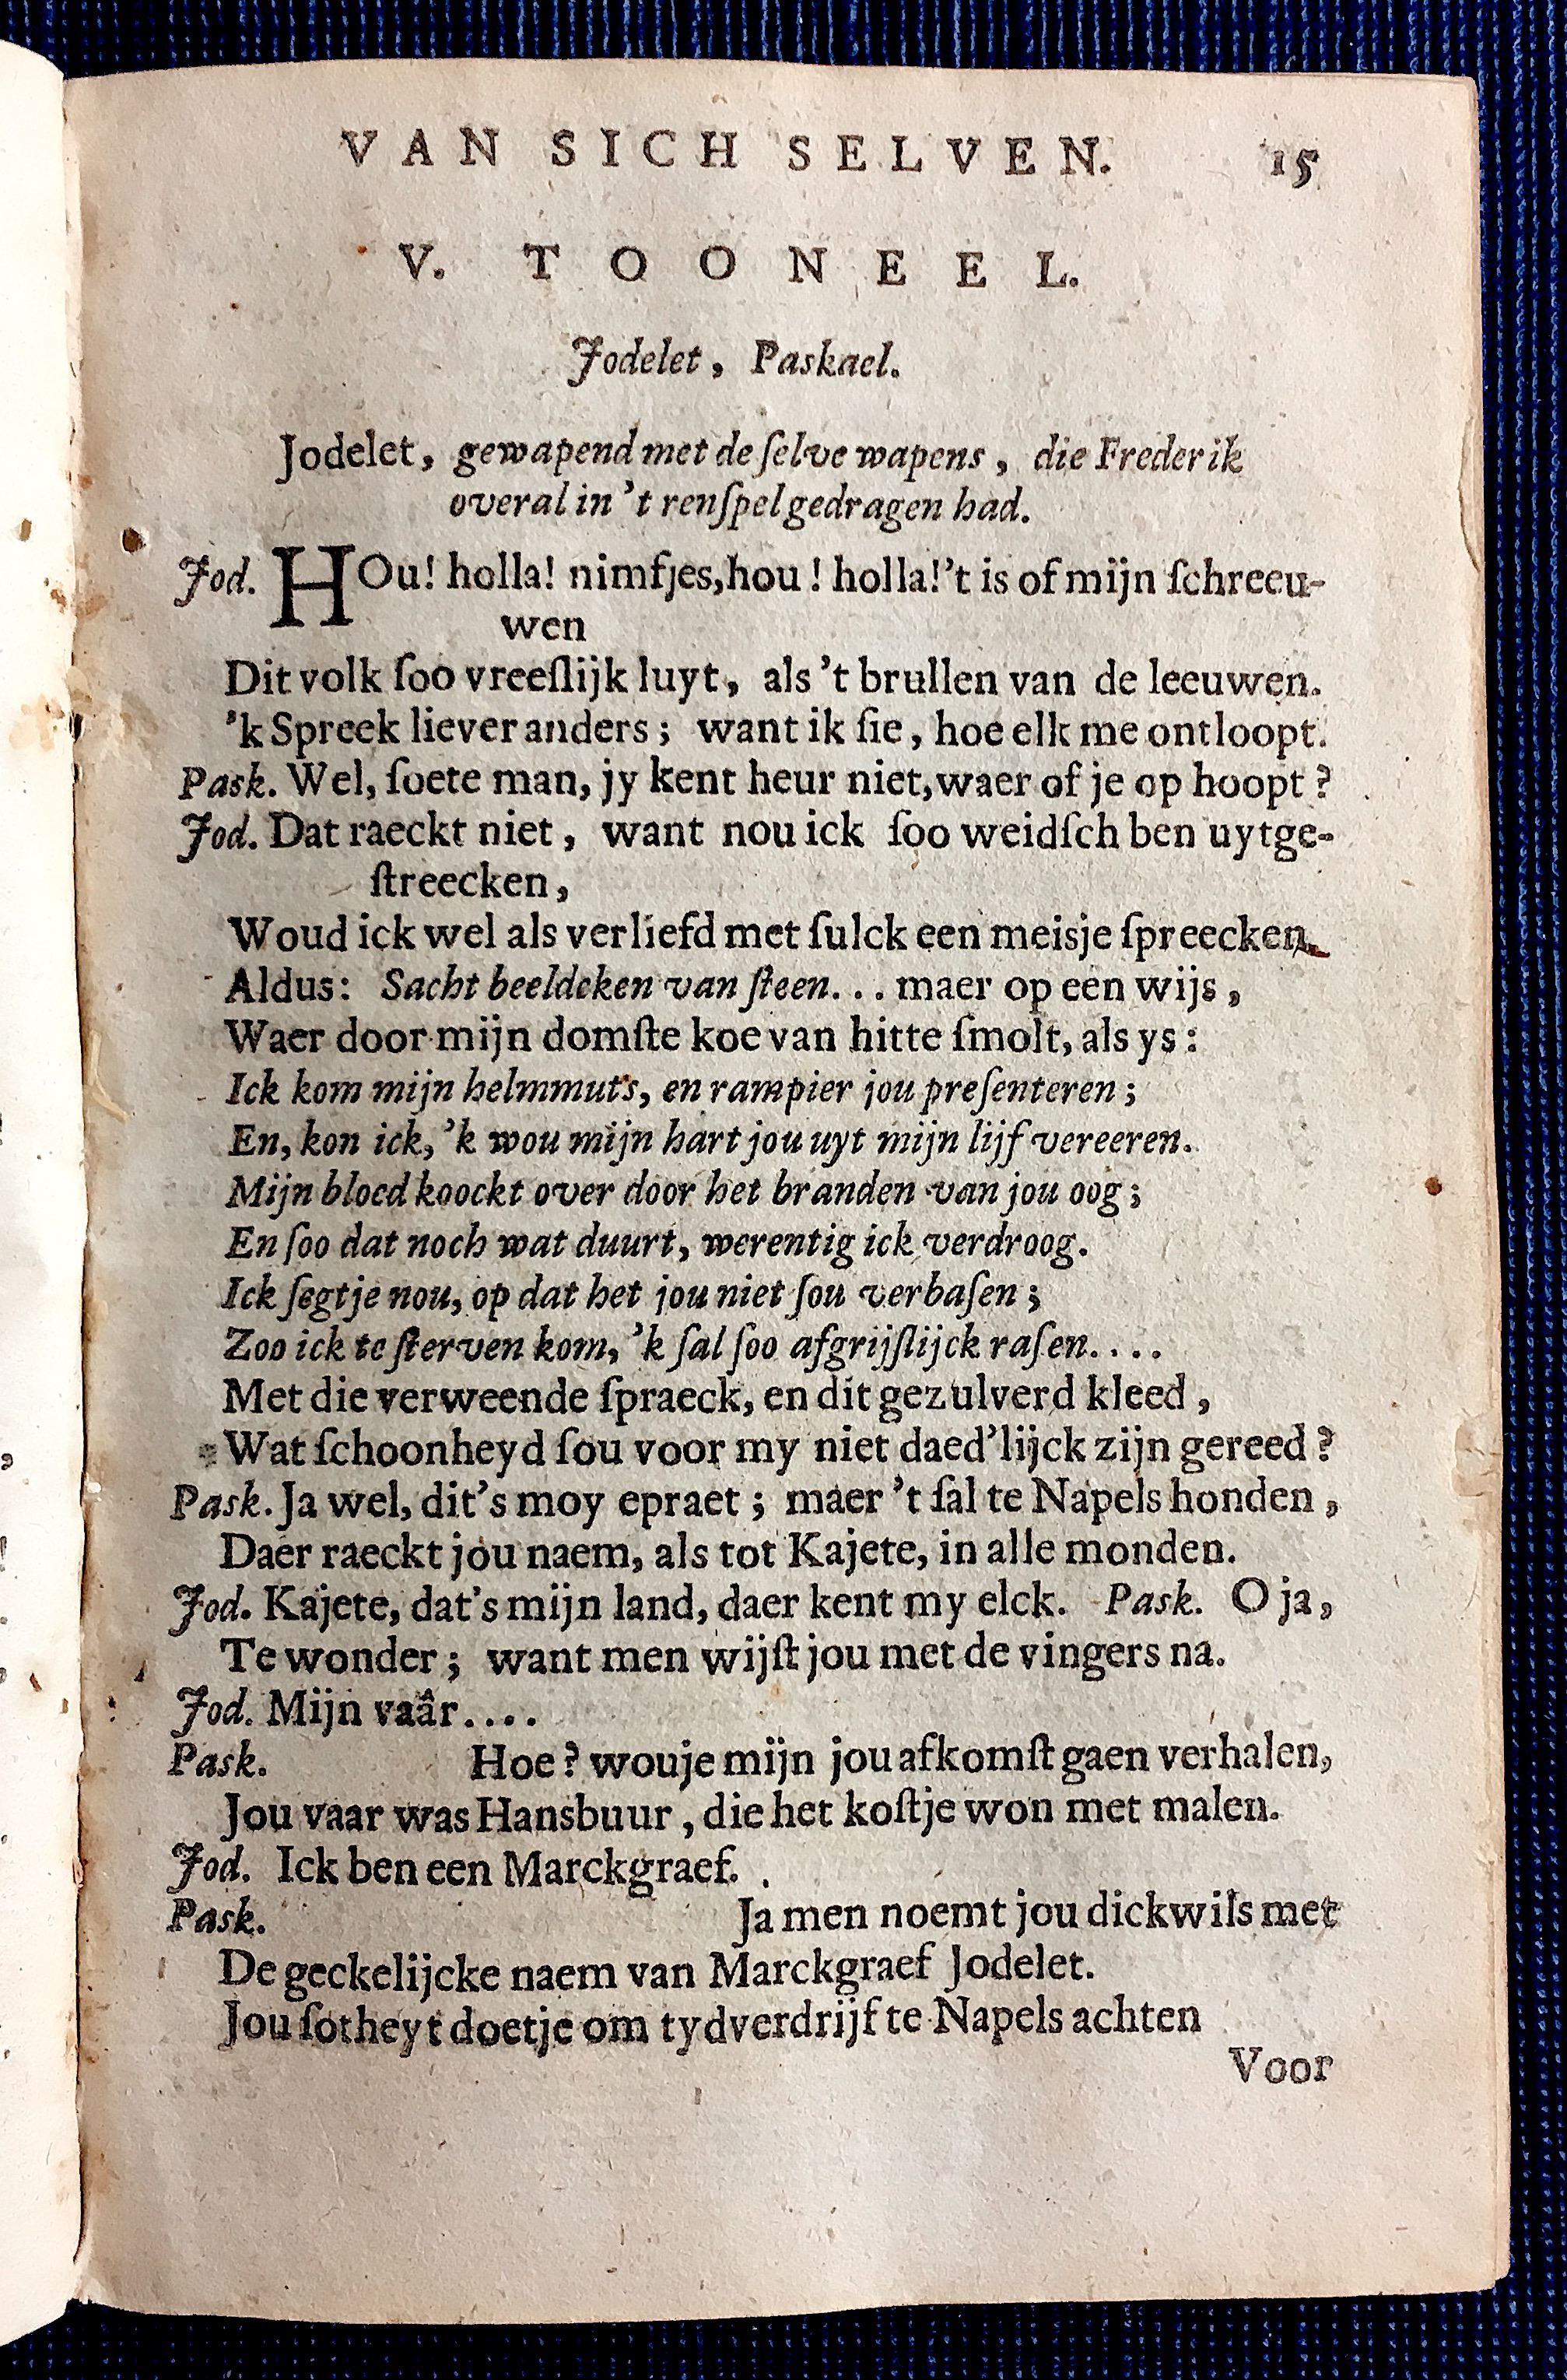 VAN SICH SELVEN. 15
V. TOONEEL.
Jodelet, Paskael.
Jodelet, gewapend met de ſelve wapens, die Frederik
overal in 't renſpel gedragen had.
Jod. HOu! holla! nimfjes, hou! holla! 't is of mijn ſchreeu-
wen
Dit volk ſoo vreeſlijk luyt, als 't brullen van de leeuwen.
'k Spreek liever anders; want ik ſie, hoe elk me ontloopt.
Pask. Wel, ſoete man, jy kent heur niet, waer of je op hoopt?
Jod. Dat raeckt niet, want nou ick ſoo weidſch ben uytge-
ſtreecken,
Woud ick wel als verliefd met ſulck een meisje ſpreecken.
Aldus: Sacht beeldeken van ſteen... maer op een wijs,
Waer door mijn domſte koe van hitte ſmolt, als ys:
Ick kom mijn helmmuts, en rampier jou preſenteren;
En, kon ick, 'k wou mijn hart jou uyt mijn lijf vereeren.
Mijn bloed koockt over door het branden van jou oog;
En ſoo dat noch wat duurt, werentig ick verdroog.
Ick ſegtje nou, op dat het jou niet ſou verbaſen;
Zoo ick te ſterven kom, 'k ſal ſoo afgrijſlijck raſen....
Met die verweende ſpraeck, en dit gezulverd kleed,
Wat ſchoonheyd ſou voor my niet daed'lijck zijn gereed?
Pask. Ja wel, dit's moy epraet; maer 't ſal te Napels honden,
Daer raeckt jou naem, als tot Kajete, in alle monden.
Jod. Kajete, dat's mijn land, daer kent my elck. Pask. O ja,
Te wonder; want men wijſt jou met de vingers na.
Jod. Mijn vaâr....
Pask. Hoe? wouje mijn jou afkomſt gaen verhalen,
Jou vaar was Hansbuur, die het koſtje won met malen.
Jod. Ick ben een Marckgraef.
Pask. Ja men noemt jou dickwils met
De geckelijcke naem van Marckgraef Jodelet.
Jou ſotheyt doetje om tydverdrijf te Napels achten
Voor